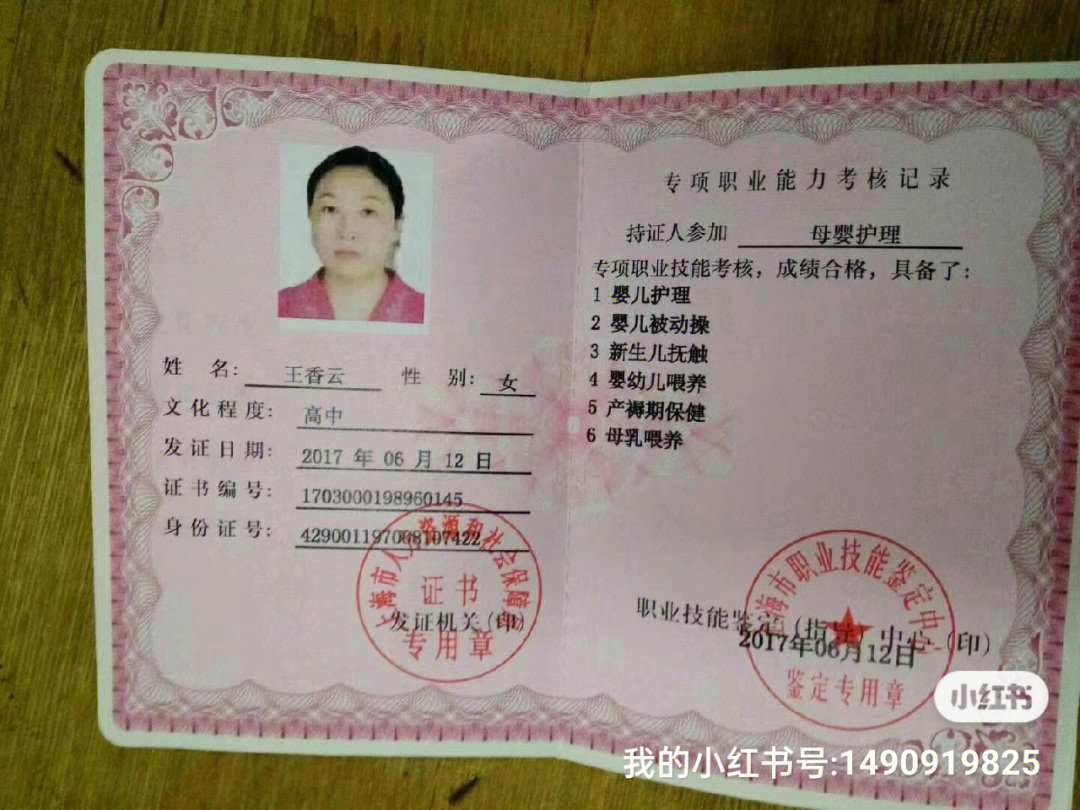 姓 名: 王香云 性 别: 女
文化程度: 高中
发证日期: 2017 年 06 月 12 日
证书编号: 1703000198960145
身份证号: 429001197008107422
证书
发证机关(印)
专用章
专项职业能力考核记录
持证人参加 母婴护理
专项职业技能考核，成绩合格，具备了:
1 婴儿护理
2 婴儿被动操
3 新生儿抚触
4 婴幼儿喂养
5 产褥期保健
6 母乳喂养
海市职业技能鉴定中心
职业技能鉴定(指导)中心(印)
2017年06月12日
鉴定专用章
小红书
我的小红书号:1490919825